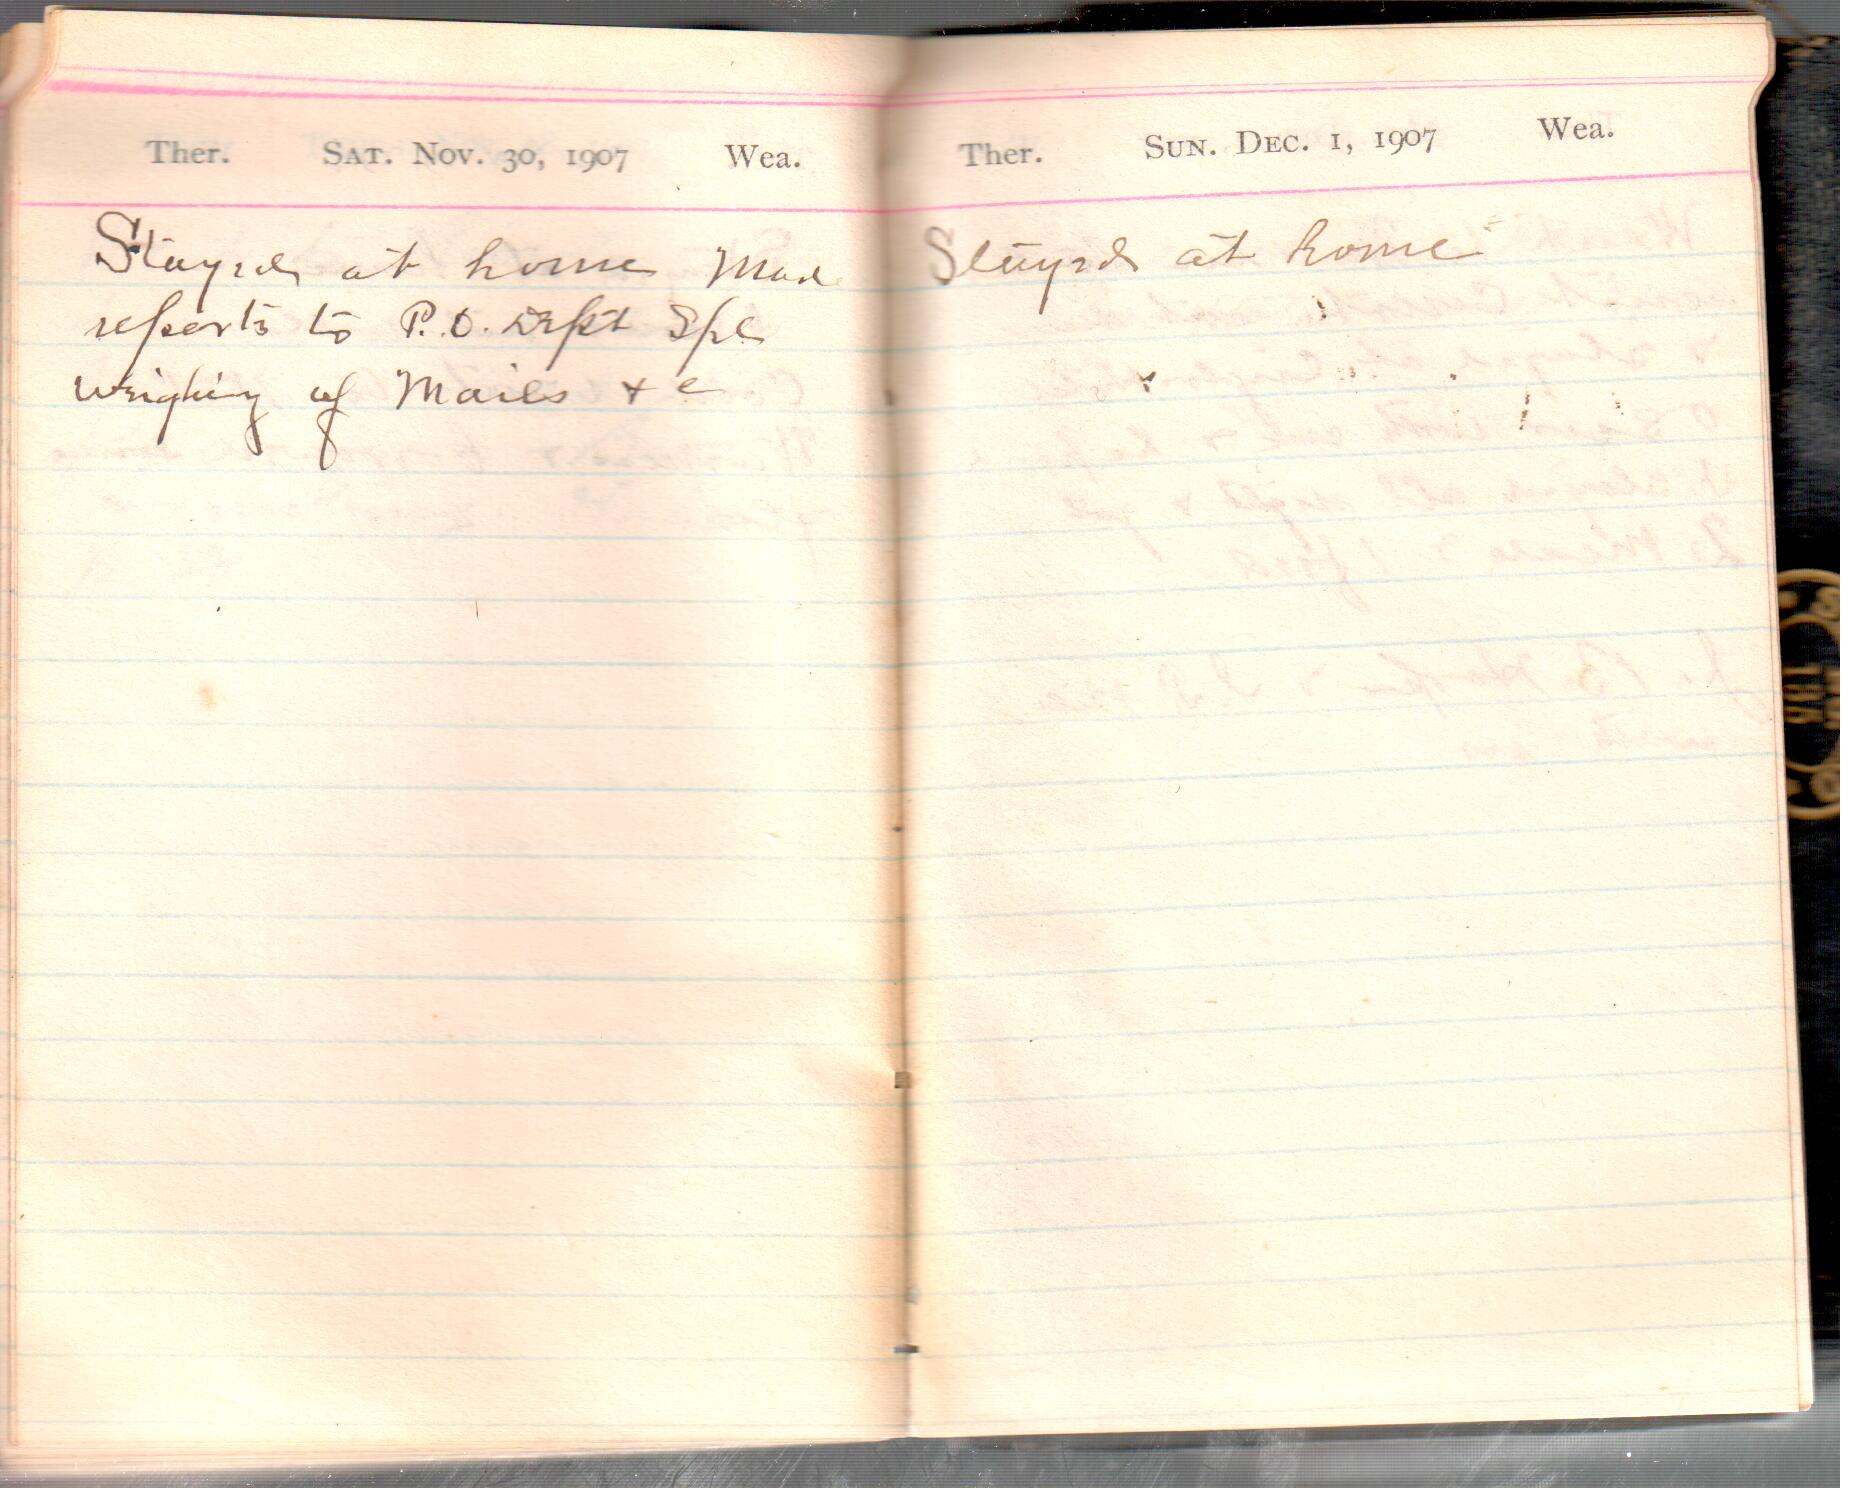 Ther. Sat. Nov. 30, 1907 Wea.
Stayed at home Mad
reports to P.O. Dept Spl
weighing of Mails + c
Ther. Sun. Dec. 1, 1907 Wea.
Stayed at home